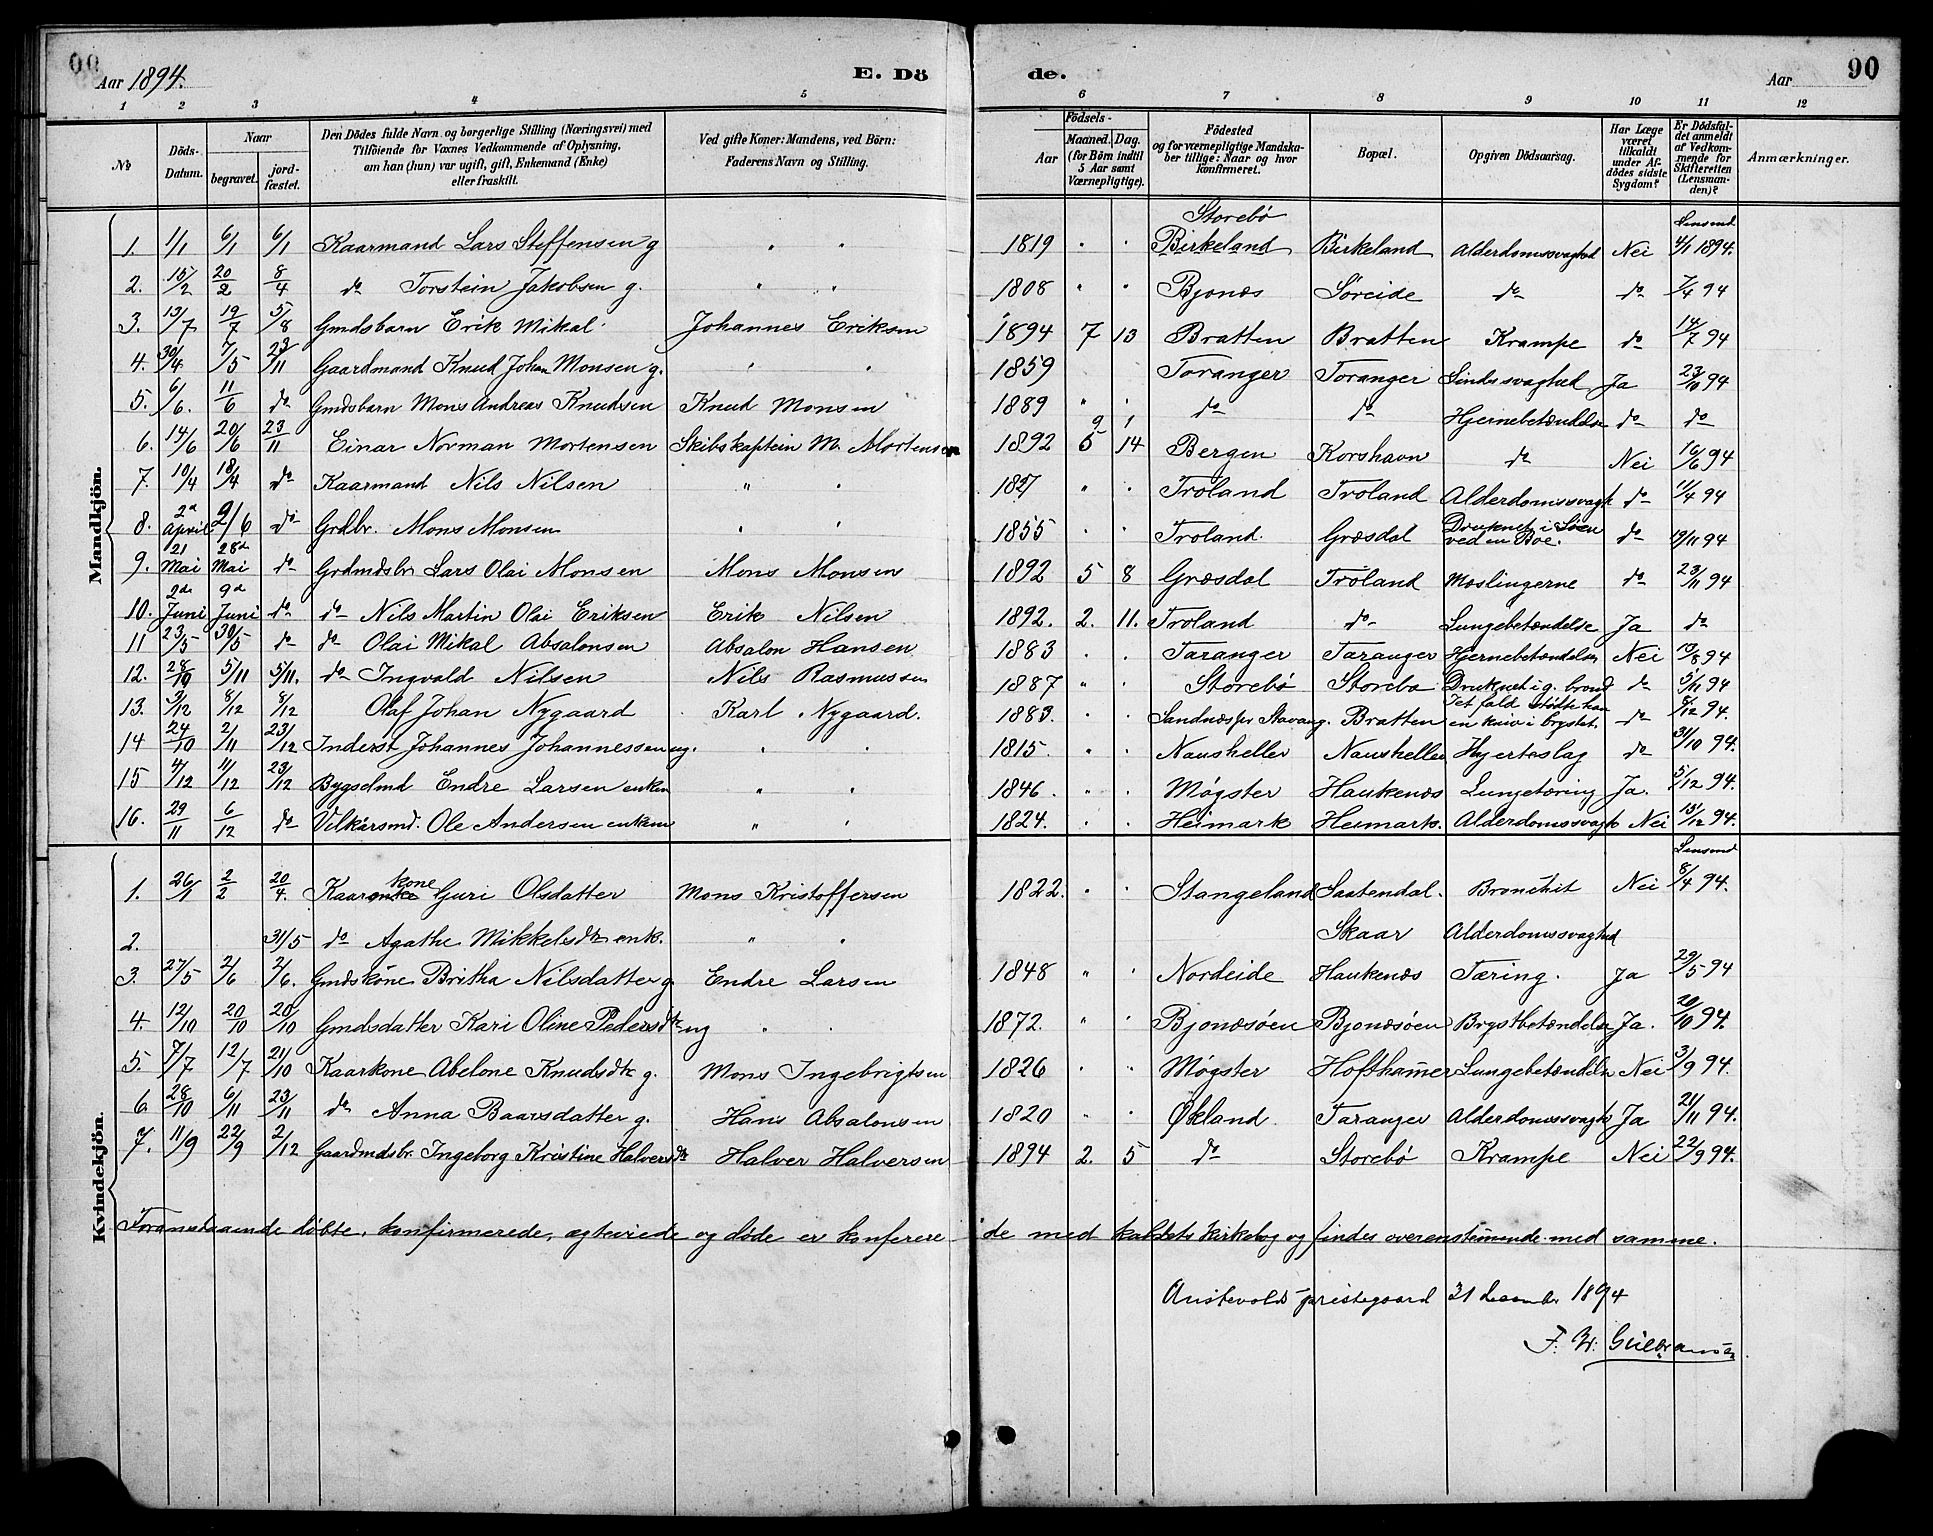 90
Aar 1894. E. Dö de. Aar 90
1 2 3 4 5 6 7 8 9 10 11 12
№ Döds-Datum. Naar begravet. jordfæstet. Den Dödes fulde Navn og borgerlige Stilling (Næringsvei) med Tilföiende for Voxnes Vedkommende af Oplysning, om han (hun) var ugift, gift, Enkemand (Enke) eller fraskilt. Ved gifte Koner: Mandens, ved Börn: Faderens Navn og Stilling. Födsels- Aar Maaned. Dag. (for Börn indtil 5 Aar samt Værnepligtige). Födested og for værnepligtige Mandskaber tillige: Naar og hvor konfirmeret. Bopæl. Opgiven Dödsaarsag. Har Læge været tilkaldt under Afdödes sidste Sygdom? Er Dödsfaldet anmeldt af Vedkommende for Skifteretten (Lensmanden)? Anmærkninger.
Mandkjön.
1. 1/1 6/1 6/1 Kaarmand Lars Steffensen g " " 1819 " " Storebø Birkeland Birkeland Alderdomssvaghed Nei Lensmd 4/1 1894.
2. 15/2 20/2 8/4 do Torstein Jakobsen g. " " 1808 " " Bjonæs Søreide do do 7/4 94
3. 13/7 19/7 5/8 Gmdsbarn Erik Mikal Johannes Eriksen 1894 7 13 Bratten Bratten Krampe do 14/7 94
4. 30/4 7/5 23/11 Gaardmand Knud Johan Monsen g. " " 1859 Toranger Toranger Sindssvaghed Ja 23/10 94
5. 6/6. 11/6 do Gmdsbarn Mons Andreas Knudsen Knud Monsen 1889 " " do do Hjernebetændelse do do
6. 14/6 20/6 23/11 Einar Norman Mortensen Skibskaptein M. Mortensen 1892 9 1 5 14 Bergen Korshavn do Nei 16/6 94
7. 10/4 18/4 do Kaarmand Nils Nilsen " " 1817 " " Troland Troland Alderdomssvagh do 11/4 94
8. 2d April 9/6 do Grdbr. Mons Monsen " " 1855 " " Troland. Græsdal Druknet i Søen ved en Boe. do 19/11 94
9. 21 Mai 28d Mai do Grdmdsbr Lars Olai Monsen Mons Monsen 1892 5 8 Græsdal Troland Mæslingerne do 23/11 94
10. 2de Juni 9d Juni do do Nils Martin Olai Eriksen Erik Nilsen 1892. 2. 11. Troland do Lungebetændelse Ja do
11 23/5 30/5 do do Olai Mikal Absalonsen Absalon Hansen 1883 . . Taranger Taranger Hjernebetændelse Nei 10/8 94
12. 28/10 5/11 5/11. do Ingvald Nilsen Nils Rasmussen 1887 " " Storebø Storebø Druknet i g. brønd do 5/11 94
13. 3/12 8/12 8/12 Olaf Johan Nygaard Karl Nygaard. 1883. " . Sandnæs pr Stavang. Bratten I et fald stødte han en kniv i brystet. do 8/12 94.
14 24/10 2/11 23/12 Inderst Johannes Johannessen ug. " " 1815 " . Nausheller Nausheller Hjerteslag do 31/10 94.
15 4/12 11/12 23/12 Bygselmd Endre Larsen enkem " " 1846 . " . Møgster Haukenæs Lungetæring Ja. 5/12 94.
16. 29/11 6/12 do Vilkårsmd. Ole Andersen enkem " " 1824. " . Heimark Heimark. Alderdomssvagh Nei 13/12 94.
Kvindekjön.
1. 26/1 2/2 20/4. Kaarkone Guri Olsdatter Mons Kristoffersen 1822. " . Stangeland Saatendal. Bronchit Nei Lensmd 8/4 94.
2. 31/5 do Agathe Mikkelsdtr enk. " . Skaar Alderdomssvaghed
3. 27/5 2/6 2/6. Gmdskone Britha Nilsdatter g Endre Larsen 1848 " . Nordeide Haukenæs Tæring. Ja 29/5 94
4. 12/10 20/10 20/10 Gmdsdatter Kari Oline Pedersdtr ug " . 1872. " . Bjonæsøen Bjonæsøen Brystbetændelse Ja. 20/10 94.
5. 7/7 12/7 21/10 Kaarkone Abelone Knudsdtr g. Mons Ingebrigtsen 1826 " . Møgster Hofthamer Lungebetændelse Nei 3/9 94.
6. 28/10 6/11 23/11 do Anna Baarsdatter g. Hans Absalonsen 1820 " . Økland. Taranger Alderdomssvagh Ja 21/11 94.
7. 11/9 22/9 2/12 Gaardmdsbr. Ingeborg Kristine Halversdtr Halver Halversen 1894 2. 5 do Storebø Krampe Nei 22/9 94.
Foranstaaende døbte, konfirmerede, ægteviede og døde er konferere de med kaldets kirkebog og findes overenstemmende med samme.
Austevolds prestegaard 31 decembr 1894
F. W. Guldbransen